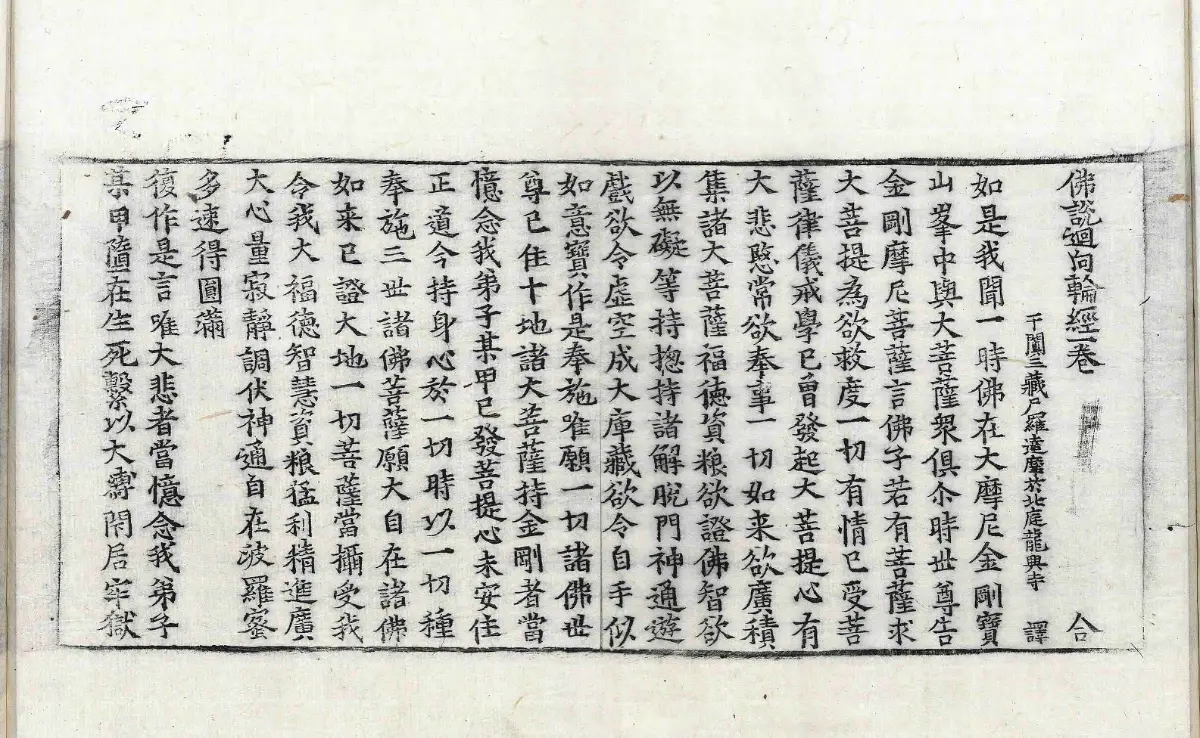 佛說迴向輪經一卷 合
于闐三藏尸羅達摩於北庭龍興寺 譯
如是我聞一時佛在大摩尼金剛寶
山峯中與大菩薩衆俱尒時世尊告
金剛摩尼菩薩言佛子若有菩薩求
大菩提為欲救度一切有情已受菩
薩律儀戒學已曾發起大菩提心有
大悲愍常欲奉事一切如来欲廣積
集諸大菩薩福德資粮欲證佛智欲
以無礙等持揔持諸解脫門神通遊
戲欲令虛空成大庫藏欲令自手似
如意寶作是奉施唯願一切諸佛世
尊已住十地諸大菩薩持金剛者當
憶念我弟子某甲已發菩提心未安住
正道今持身心於一切時以一切種
奉施三世諸佛菩薩願大自在諸佛
如来已證大地一切菩薩當攝受我
令我大福德智慧資粮猛利精進廣
大心量寂靜調伏神通自在波羅蜜
多速得圓滿
復作是言唯大悲者當憶念我弟子
某甲隨在生死繫以大縛閇居牢獄